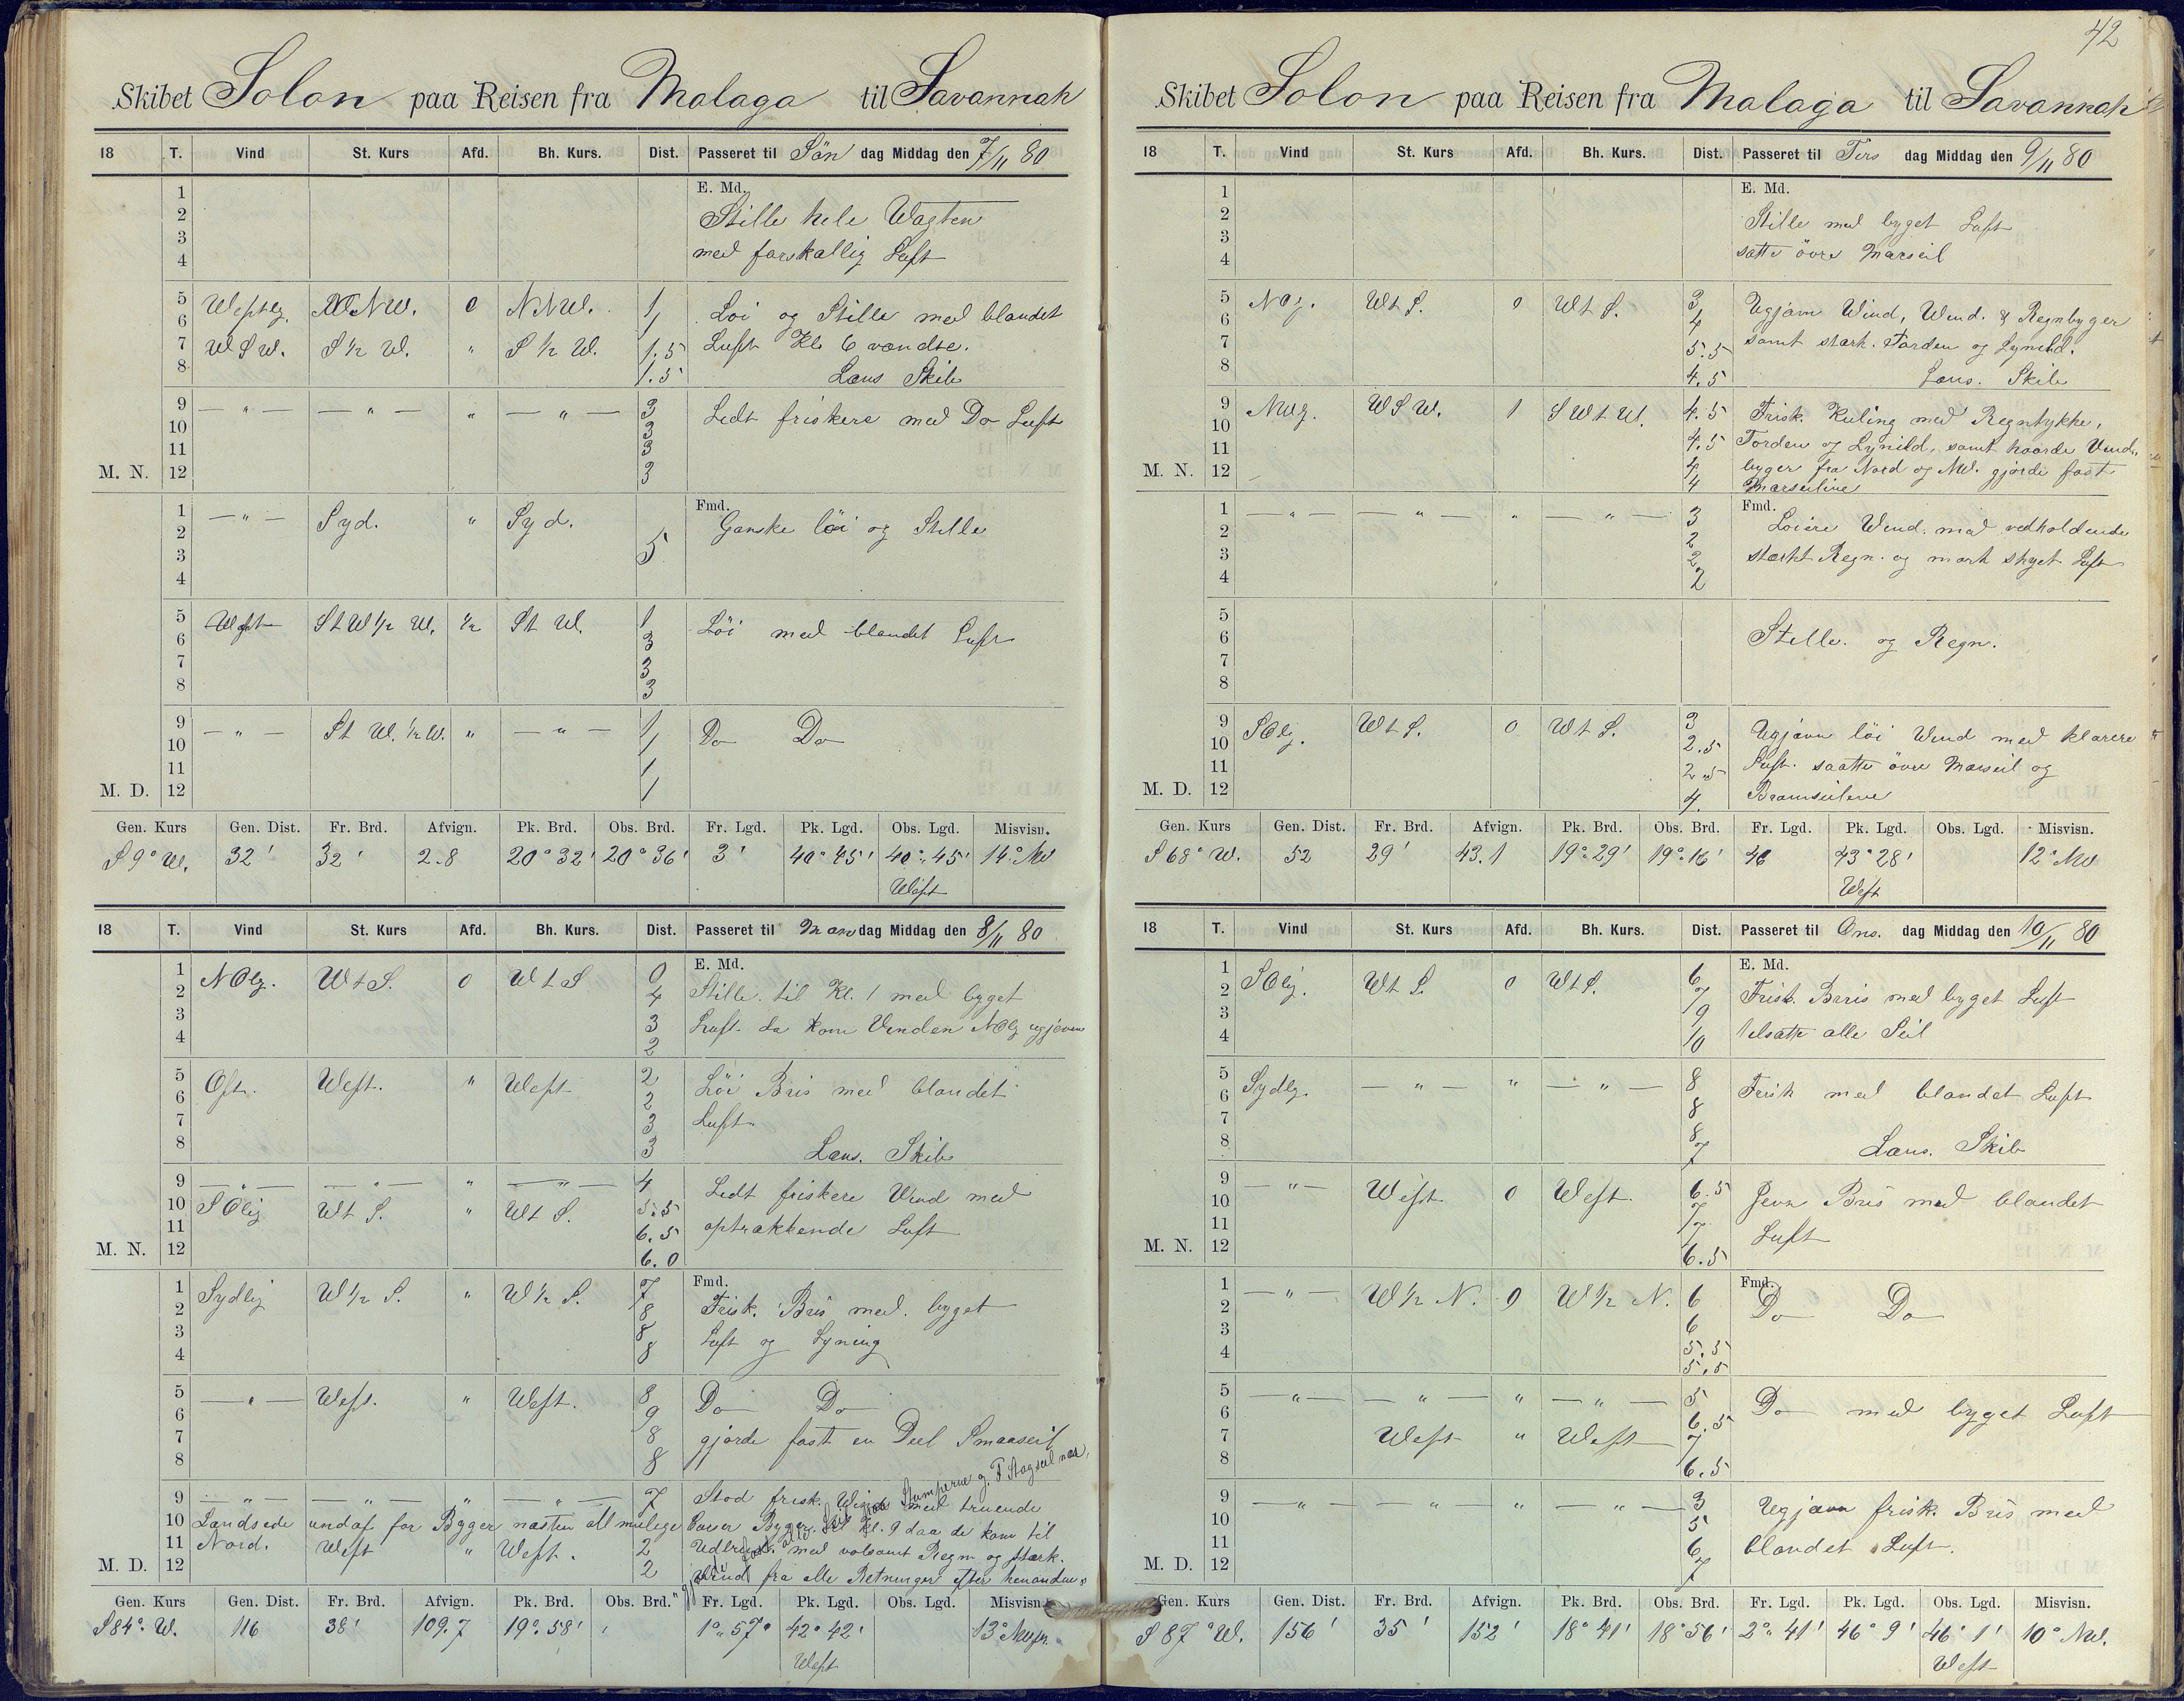 Skibet Solon paa Reisen fra Malaga til Savannah
18 T. Vind St. Kurs Afd. Bh. Kurs. Dist. Passeret til Søn dag Middag den 7/11 80
E. Md.
1
2 Stille hele Wagten
3 med forskallig Luft
4
5 Westlig. NNW. 0 NNW. 1 Løi og Stille med blandet
6 1
7 WSW. S 1/2 W. " S 1/2 W. 1.5 Luft Kl. 6 vendte.
8 1.5 Læns Skib
9 — " — — " — " — " — 3 Lidt friskere med Do Luft
10 3
11 3
M. N. 12 3
Fmd.
1 — " — Syd. " Syd. Ganske løi og Stille
2
3 5
4
5 West St W 1/2 W. 1/2 St W. 1 Löi med blandet Luft
6 3
7 3
8 3
9 — " — St W. 1/2 W. " — " — 1 Do Do
10 1
11 1
M. D. 12 1
Gen. Kurs Gen. Dist. Fr. Brd. Afvign. Pk. Brd. Obs. Brd. Fr. Lgd. Pk. Lgd. Obs. Lgd. Misvisn.
S 9° W. 32' 32' 2.8 20° 32' 20° 36' 3' 40° 45' 40° 45' 14° NW
West
18 T. Vind St. Kurs Afd. Bh. Kurs. Dist. Passeret til Man dag Middag den 8/11 80
E. Md.
1 NOlg. WtS. 0 WtS 0
2 4 Stille til Kl. 1 med byget
3 3 Luft da kom Vinden NOlg ugjævn
4 2
5 Ost. West. " West 2 Löi Bris med blandet
6 2
7 3 Luft.
8 3 Læns. Skib
9 — " — — " — " — " — 4 Lidt friskere Vind med
10 SOlig Wt S. " Wt S. 5.5
11 6.5 optrækkende Luft
M. N. 12 6.0
Fmd.
1 Sydlig W 1/2 S. " W 1/2 S. 7
2 8 Frisk. Bris med. byget
3 8 Luft og Lyning
4 8
5 — " — West. " West. 8 Do Do
6 9
7 8 gjorde fast en Deel Smaaseil
8 8
9 — " — — " — " — " — 7 Stod frisk. med truende
10 Landsede undaf for Bÿger næsten all mulige Byger. til Kl. 9 daa de kom til
11 Nord. West " West. 2 med volsomt Regn og stærk.
M. D. 12 2 Vind fra alle Retninger efter henanden
Gen. Kurs Gen. Dist. Fr. Brd. Afvign. Pk. Brd. Obs. Brd. Fr. Lgd. Pk. Lgd. Obs. Lgd. Misvisn.
S 84° W. 116 38' 109.7 19° 58' 1° 57' 42° 42' 13°
West
42
Skibet Solon paa Reisen fra Malaga til Savannah
18 T. Vind St. Kurs Afd. Bh. Kurs. Dist. Passeret til Tirs dag Middag den 9/11 80
E. Md.
1
2 Stille med byget Luft
3 satte övre Marseil
4
5 NOg. Wt S. 0 Wt S. 3 Ugjævn Wind, Wind. & Regnbyger
6 4
7 5.5 samt stærk. Torden og Lynild.
8 4.5 Læns. Skib
9 NWg. WSW. 1 SWt W. 4.5 Frisk. Kuling med Regntykke,
10 4.5 Torden og Lynild, samt haarde Vind,
11 4 byger fra Nord og NW. gjorde fast
M. N. 12 4 Marseilene
Fmd.
1 — " — — " — " — " — 3 Löiere Wind. med vedholdende
2 2
3 2 stærkt Regn. og mørk skyet Luft
4 2
5
6 Stille. og Regn.
7
8
9 SOlg. Wt S. 0 Wt S. 3 Ugjævn löi Wind med klarere
10 2.5
11 2.5 Luft. saatte övre Marseil og
M. D. 12 4 Bramseilene
Gen. Kurs Gen. Dist. Fr. Brd. Afvign. Pk. Brd. Obs. Brd. Fr. Lgd. Pk. Lgd. Obs. Lgd. Misvisn.
S 68° W. 52 29' 43.1 19° 29' 19° 16' 46 43° 28' 12° NW
West
18 T. Vind St. Kurs Afd. Bh. Kurs. Dist. Passeret til Ons. dag Middag den 10/11 80
E. Md.
1 SOlig. Wt S. 0 WtS. 6
2 7 Frisk. Bris med byget Luft
3 9
4 10 tilsatte alle Seil
5 Sydlg. — " — " — " — 8 Frisk med blandet Luft
6 8
7 8
8 7 Læns. Skib
9 — " — West. 0 West. 6.5 Jevn Bris med blandet
10 7
11 7 Luft
M. N. 12 6.5
Fmd.
1 — " — W 1/2 N. 0 W 1/2 N. 6 Do Do
2 6
3 5.5
4 5.5
5 — " — — " — " — " — 5 Do med byget Luft
6 6.5
7 West " West 7
8 6.5
9 — " — — " — " — " — 3 Ugjævn frisk. Bris med
10 5
11 6 blandet Luft.
M. D. 12 7
Gen. Kurs Gen. Dist. Fr. Brd. Afvign. Pk. Brd. Obs. Brd. Fr. Lgd. Pk. Lgd. Obs. Lgd. Misvisn.
S 87° W. 156' 35' 152' 18° 41' 18° 56' 2° 41' 46° 9' 46° 1' 10° NW.
West